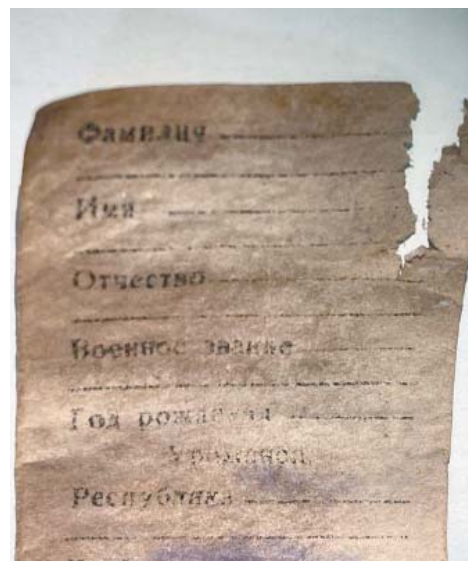 Фамилия
Имя
Отчество
Военное звание
Год рождения
Уроженец
Республика